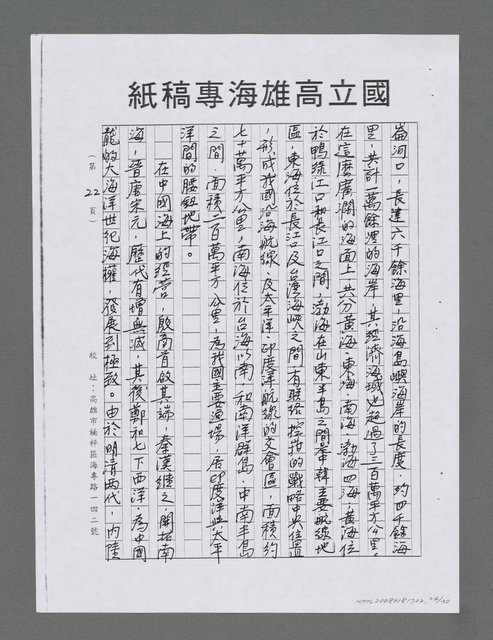 國立高雄海專稿紙
崙河口，長達六千餘海里，沿海島嶼海岸的長度，約四千餘海
里，共計一萬餘浬的海岸，其經濟海域也超過了三百萬平方公里。
在這麼廣濶的海面上，共分黃海、東海、南海、渤海四海，黃海位
於鴨綠江口和長江口之間，渤海在山東半島之間，華韓主要航線地
區，東海位於長江口及台灣海峽之間，有聯絡控扼的戰略中央位置
，形成我國沿海航線，及太平洋、印度洋航線的交會區，面積約
七十萬平方公里，南海位於台海以南，和南洋群島、中南半島
之間，面積二百萬平方公里，為我國主要漁場，居印度洋與太平
洋間的腰鈕地帶。
在中國海上的經營，殷商首啟其端，秦漢繼之，開拓南
海，晉唐宋元，歷代有增無減，其後鄭和七下西洋，為中國
龍的大海洋世紀海權，發展到極致。由於明清兩代，內陸
（第 22 頁）
校址：高雄市楠梓區海專路一四二號
NMTL20080181702, 24/30